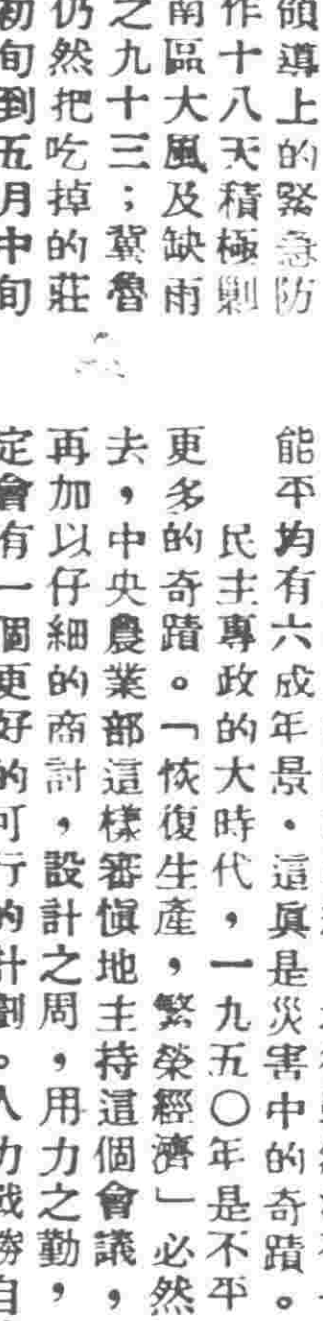 領導上的緊急防
作十八天積極剿
南區大風及缺雨
之九十三；冀魯
仍然把吃掉的莊
初旬到五月中旬
能平均有六成年景。這眞是災害中的奇蹟。
民主專政的大時代，一九五〇年是不平
更多的奇蹟。「恢復生產，繁榮經濟」必然
去，中央農業部這樣審愼地主持這個會議，
再加以仔細的商討，設計之周，用力之勤，
定會有一個更好的可行的計劃。人力戰勝自